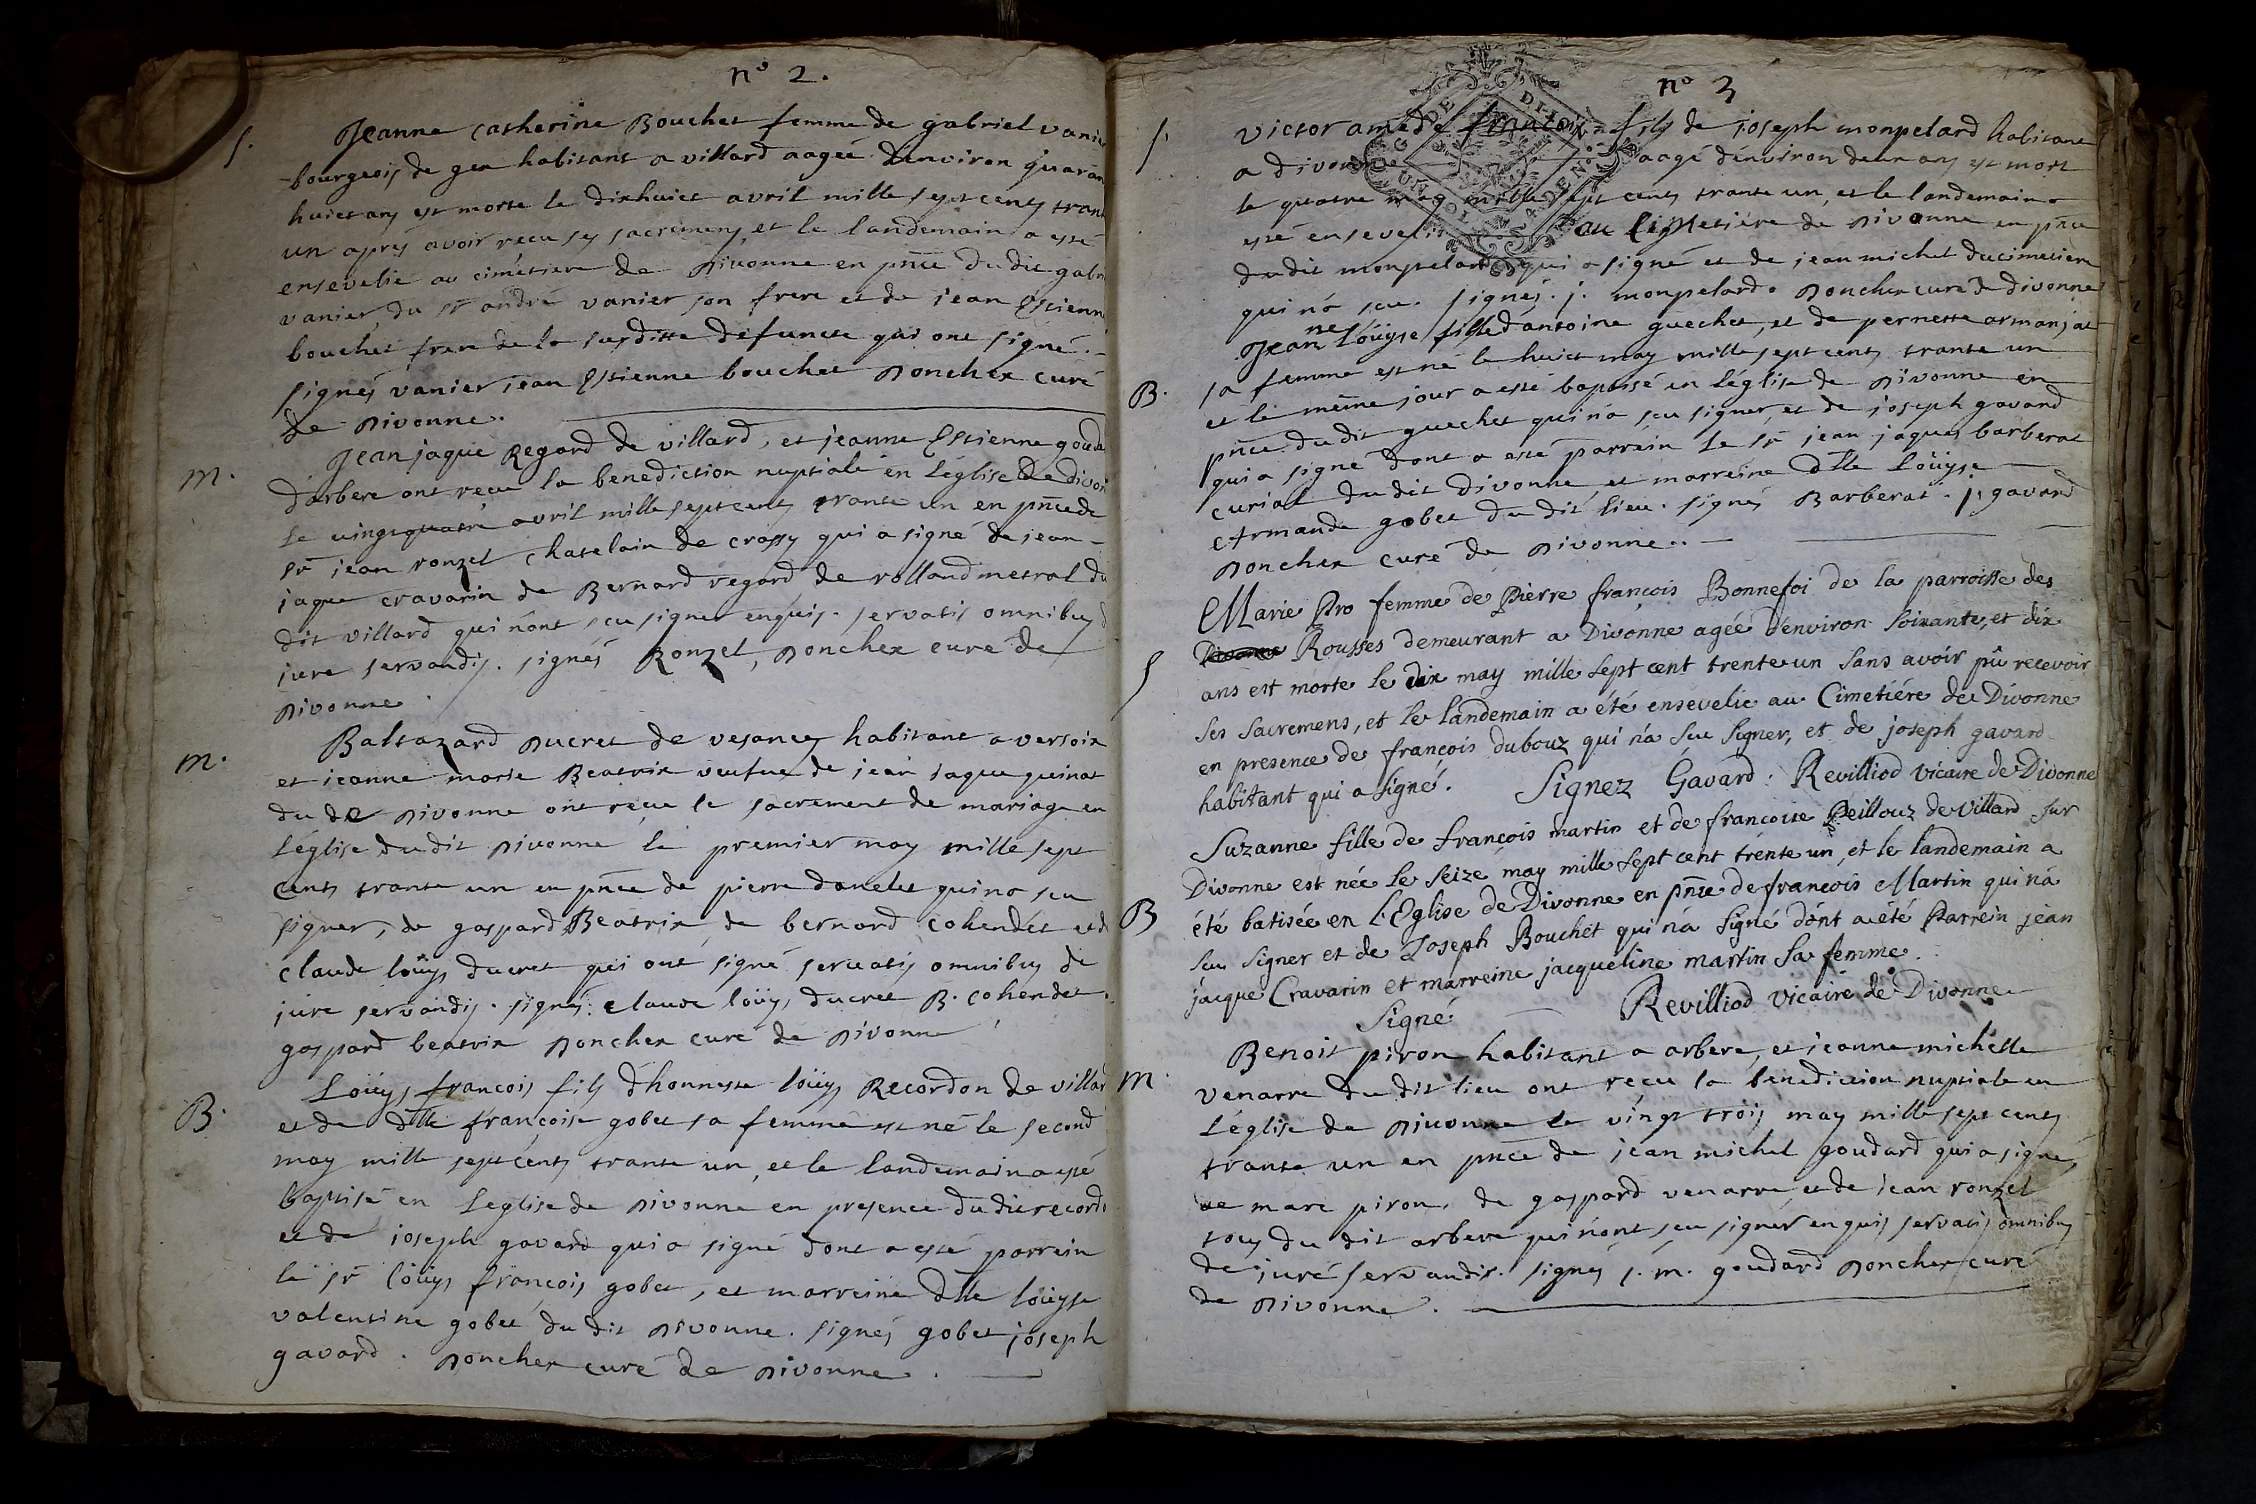 nº 2.
S. Jeanne Catherine Bouchet femme de gabriel vanie
bourgeois de gex habitant a villard aagée denviron quaran
huict ans est morte le dixhuict avril mille sept cents trant
un apres avoir receu ses sacremens, et le landemain a esté
ensevelie au cimetiere de Divonne en pñce du dit gabri
vanier, du sr andré vanier son frere et de jean Estienne
bouchet frere de la susditte defuncte qui ont signé.
signés vanier jean Estienne bouchet Poncher curé
de Divonne.
m. Jean jaque Regard de villard, et jeanne Estienne gouda
d'arbere ont receu la benediction nuptiale en L'église de divon
le vingtquatre avril mille sept cents trante un en pñce de
sr jean ronzel chatelain de crassy qui a signé de jean
jaque cravarin de Bernard regard de rolland mestral du
dit villard qui n'ont sceu signer enquis. servatis omnibus d
jure servandis. signés Ronzel, Poncher curé de
Divonne.
m. Baltazard Ducret de vesancy habitant a versoix
et jeanne marie Beatrix veufue de jean jaque guinat
du dt Divonne ont receu le sacrement de mariage en
L'église du dit Divonne le premier may mille sept
cents trante un en pñce de pierre douclet qui na sceu
signer, de gaspard Beatrix, de bernard cohendet et d
claude loüys ducret qui ont signé servatis omnibus de
jure servandis. signés. claude loüys, ducret B. cohendet.
gaspard beatrix Poncher curé de Divonne
B. Loüys françois fils d'honneste loüys Recordon de villar
et de dlle françoise gobet sa femme est né le second
may mille sept cents trante un, et le landemain a esté
baptisé en L'église de Divonne en presence du dit record
et de joseph gavard qui a signé dont a esté parrein
le sr loüys françois gobet, et marreine dlle loüyse
valentine gobet du dit Divonne. signés gobet joseph
gavard. Poncher curé de Divonne.
nº 3
S. Victor amedé françois fils de joseph monpelard habitant
a divonne aagé d'environ deux ans est mort
le quatre may mille sept cents trante un, et le landemain a
esté enseveli au cimetiére de Divonne en pñce
du dit monpelard qui a signé et de jean michel ducimetiere
qui n'a sceu. signés. j. monpelard. Poncher curé de divonne
Jeanne Loüyse fille d'antoine guechet, et de pernette armanjat
B. sa femme est né le huict may mille sept cents trante un
et le méme jour a esté baptisé en L'église de Divonne en
pñce du dit guechet qui n'a sceu signer, et de joseph gavard
qui a signé dont a esté parrein le sr jean jaques barberat
curial du dit Divonne et marreine dlle Loüyse
Armande gobet du dit lieu. signés Barberat. j. gavard
Poncher curé de Divonne.
Marie Pro femme de Pierre françois Bonnefoi de la parroisse des
Divonne Rousses demeurant a Divonne agée d'environ soixante, et dix
S ans est morte le dix may mille sept cent trente un sans avoir pû recevoir
ses sacremens, et le landemain a été ensevelie au Cimetiére de Divonne
en presence de françois dubouz qui n'a seu signer, et de joseph gavard
habitant qui a signé. Signez Gavard. Revilliod vicaire de Divonne
Suzanne fille de françois martin et de françoise Peillouz de villard sur
Divonne est née le seize may mille sept cent trente un, et le landemain a
B été batisée en l'Eglise de Divonne en pñce de françois Martin qui n'a
seu signer et de Joseph Bouchet qui n'a signé dônt a été Parrein jean
jacque Cravarin et marreine jacqueline martin sa femme.
Signé Revilliod vicaire de Divonne
Benoit piron habitant a arbere, et jeanne michelle
m. venarre du dit lieu ont receu la benediction nuptiale en
L'église de Divonne le vingt trois may mille sept cents
trante un en pñce de jean michel goudard qui a signé,
de marc piron, de gaspard venarre, et de jean ronzel
tous du dit arbere qui n'ont sceu signer enquis servatis omnibus
de jure servandis. signés j. m. goudard Poncher curé
de Divonne.